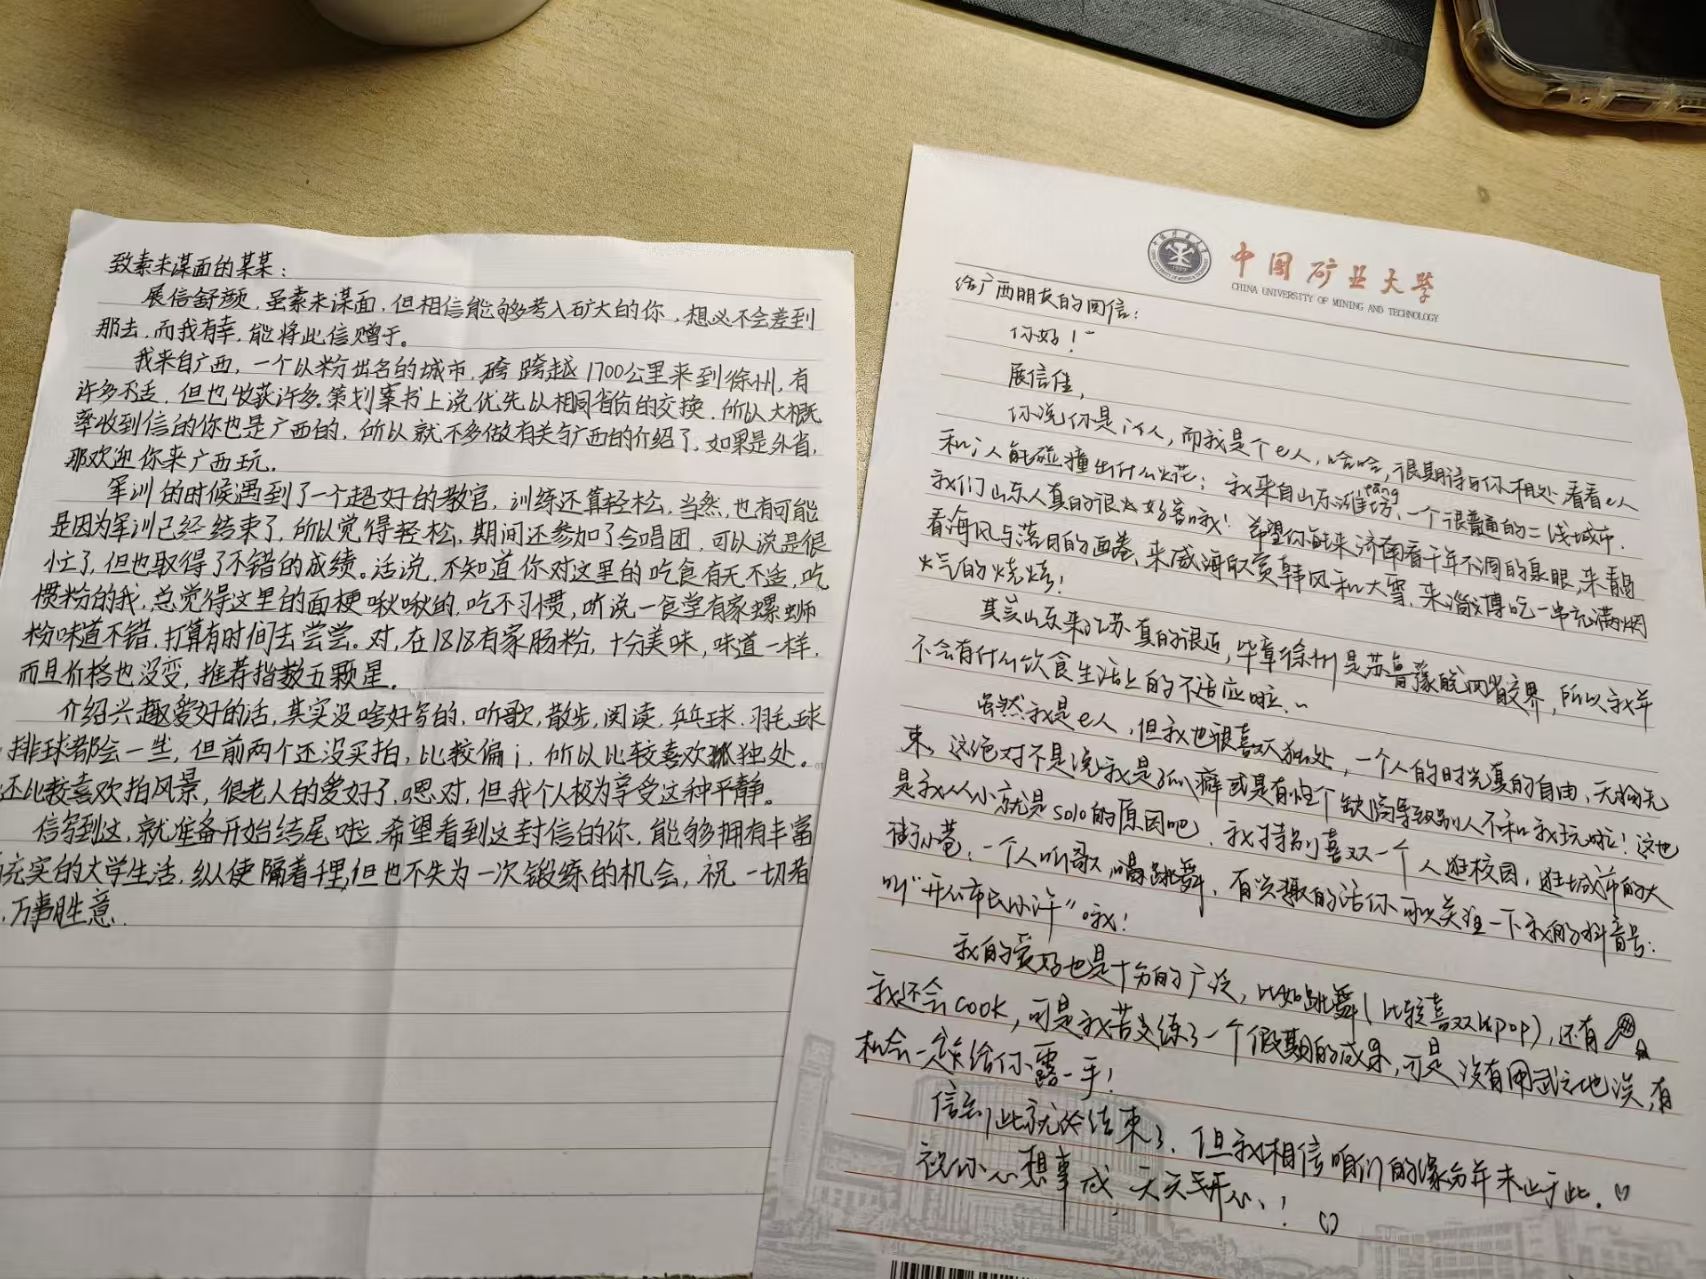 致素未谋面的某某：
展信舒颜，虽素未谋面，但相信能够考入矿大的你，想必不会差到
那去，而我有幸，能将此信赠于。
我来自广西，一个以粉出名的城市，跨跨越1700公里来到徐州，有
许多不舍，但也收获许多。策划案书上说优先以相同省份的交换，所以大概
率收到信的你也是广西的，所以就不多做有关与广西的介绍了，如果是外省，
那欢迎你来广西玩。
军训的时候遇到了一个超好的教官，训练还算轻松，当然，也有可能
是因为军训已经结束了，所以觉得轻松，期间还参加了合唱团，可以说是很
忙了，但也取得了不错的成绩。话说，不知道你对这里的吃食有无不适，吃
惯粉的我，总觉得这里的面梗啾啾的，吃不习惯，听说一食堂有家螺蛳
粉味道不错，打算有时间去尝尝。对，在1818有家肠粉，十分美味，味道一样，
而且价格也没变，推荐指数五颗星。
介绍兴趣爱好的话，其实没啥好写的，听歌，散步，阅读，乒乓球，羽毛球
排球都会一些，但前两个还没买拍，比较偏i，所以比较喜欢孤独处。
还比较喜欢拍风景，很老人的爱好了，嗯对，但我个人极为享受这种平静。
信写到这，就准备开始结尾啦，希望看到这封信的你，能够拥有丰富
充实的大学生活，纵使隔着千里，但也不失为一次锻练的机会，祝一切者
，万事胜意。
中国矿业大学
CHINA UNIVERSITY OF MINING AND TECHNOLOGY
给广西朋友的回信：
你好！~
展信佳，
你说你是i人，而我是个e人，哈哈，很期待与你相处 看看e人
和i人能碰撞出什么火花；我来自山东潍坊fang，一个很普通的二线城市，
我们山东人真的很好客哦！希望你能来济南看千年不涸的泉眼，来青岛
看海风与落日的画卷，来威海欣赏韩风和大雪，来淄博吃一串充满烟
火气的烧烤！
其实山东来江苏真的很近，毕竟徐州是苏鲁豫皖四省交界，所以我并
不会有什么饮食生活上的不适应啦。~
虽然我是e人，但我也很喜欢独处，一个人的时光真的自由，无拘无
束，这绝对不是说我是孤僻或是有性格缺陷导致别人不和我玩啦！这也
是我从小就是solo的原因吧，我特别喜欢一个人逛校园，逛城市的大
街小巷，一个人听歌，唱跳舞，有兴趣的话你可以关注一下我的抖音号：
叫“开心市民小许”哦！
我的爱好也是十分的广泛，比如跳舞（比较喜欢kpop），还有
我还会cook，可是我苦练了一个假期的成果，可是没有用武之地诶，有
机会一定给你露一手！
信到此就要结束了，但我相信咱们的缘分并未止于此。♡
祝你心想事成，天天开心！♡